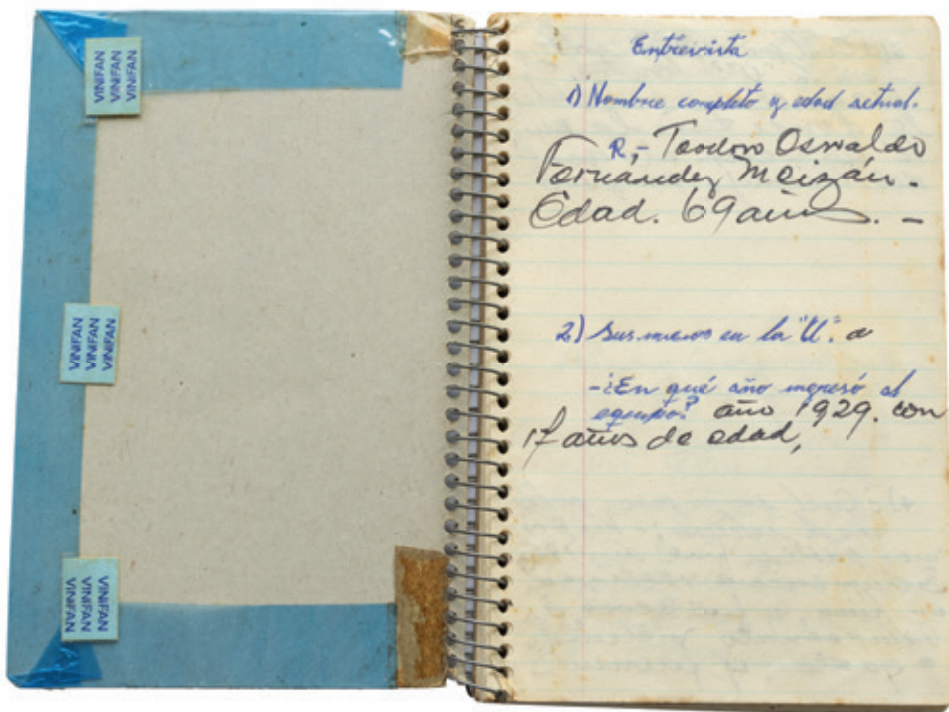 VINIFAN
VINIFAN
VINIFAN
VINIFAN
VINIFAN
VINIFAN
VINIFAN
VINIFAN
VINIFAN
Entrevista
1) Nombre completo y edad actual.
R,- Teodoro Oswaldo
Fernandez Meizán.
Edad. 69 años. -
2) Sus inicios en la "U".
-¿En qué año ingresó al
equipo? año 1929. con
17 años de edad,